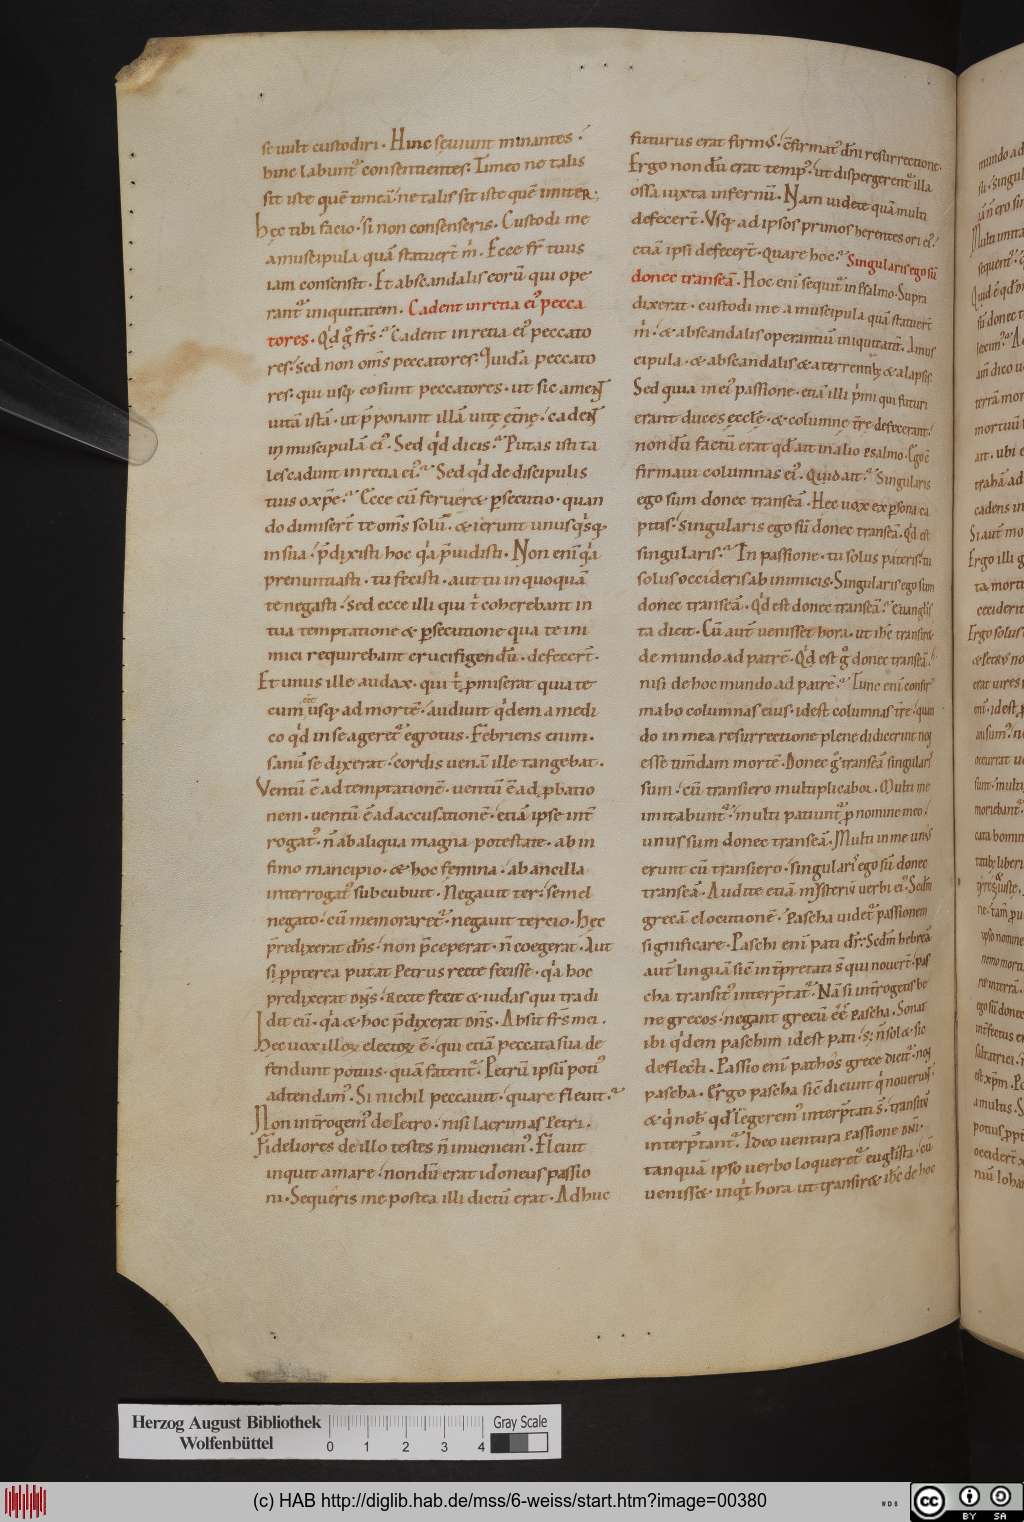 se uult custodiri · Hinc sęuiunt minantes ·
hinc labunt᷑ consentientes · Timeo ne talis
sit iste quē timeā · ne talis sit iste quē imiter;
Hęc tibi facio · si non consenseris · Custodi me
a muscipula quā statuer̄t m̄ · Ecce fr̄ tuus
iam consensit · Et ab scandalis eorū qui ope
rant᷑ iniquitatem · Cadent in retia eiꝰ pecca
tores · Qd̄ g̊ fr̄s · Cadent in retia eiꝰ peccato
res · sed non om̄s peccatores · Quidā peccato
res · qui usq; eo sunt peccatores · ut sic ament
uitā istā · ut p̄ponant illā uitę ęt̄nę · cadent
in muscipulā eiꝰ · Sed qd̄ dicis · Putas isti ta
les cadunt in retia eiꝰ · Sed qd̄ de discipulis
tuis o xp̄e · Ecce cū feruer& ꝑsecutio · quan
do dimiser̄t te om̄s solū · & ierunt unusqͥsq;
in sua · p̄dixisti hoc qͥa p̄uidisti · Non enī qͥa
prenuntiasti · tu fecisti · aut tu in quoquā
te negasti · sed ecce illi qui t̄ coherebant in
tua temptatione & ꝑsecutione qua te ini
mici requirebant crucifigendū · defecer̄t ·
Et unus ille audax · qui t̄ ꝓmiserat quia te
cum usq; ad mortē · audiuit qͥdem a medi
co qd̄ in se ageret᷑ egrotus · Febriens enim ·
sanū se dixerat · cordis uenā ille tangebat ·
Ventū ē ad temptationē · uentū ē ad ꝓbatio
nem · uentū ē ad accusationē · etiā ipse int̄
rogatꝰ · n̄ ab aliqua magna potestate · ab in
fimo mancipio · & hoc femina · ab ancilla
interrogatꝰ subcubuit · Negauit ter · semel
negato · cū memoraret᷑ · negauit tercio · Hęc
p̄redixerat dn̄s · non p̄ceperat · n̄ coegerat · Aut
si ꝓpterea putat Petrus recte fecisse · qͥa hoc
predixerat dn̄s · Recte fecit & iudas qui tradi
dit eū · qͥa & hoc p̄dixerat dn̄s · Absit fr̄s mei ·
Hęc uox illoꝝ electoꝝ ē · qui etiā peccata sua de
fendunt potius · quā fatent᷑ · Petrū ipsū potiꝰ
adtendamꝰ · Si nichil peccauit · quare fleuit ·
Non int̄rogemꝰ de Petro · nisi lacrimas Petri ·
Fideliores de illo testes n̄ inueniemꝰ · Fleuit
inquit amare · nondū erat idoneus passio
ni · Sequeris me postea illi dictū erat · Adhuc
futurus erat firmꝰ · c̄firmatꝰ dn̄i resurrectione ·
Ergo non dū erat tempꝰ · ut dispergerent᷑ illa
ossa iuxta infernū · Nam uidete quā multi
defecer̄t · Vsq; ad ipsos primos herentes ori eiꝰ ·
etiā ipsi defecer̄t · Quare hoc · Singularis ego sū
donec transeā · Hoc enī sequit᷑ in psalmo · Supra
dixerat · custodi me a muscipula quā statuer̄t
m̄ · & ab scandalis operantiū iniquitatē · A mus
cipula · & ab scandalis & a terrentib; & a lapsis ·
Sed quia in eiꝰ passione · etiā illi p̄mi qui futuri
erant duces ęcclę · & columnę t̄rę defecerant ·
non dū factū erat qd̄ ait in alio psalmo · Ego c̄
firmaui columnas eiꝰ · Quid ait · Singularis
ego sum donec transeā · Hęc uox ex ꝑsona ca
pitis · singularis ego sū donec transeā · Qd̄ est
singularis · In passione · tu solus pateris · tu
solus occideris ab inimicis · Singularis ego sum
donec transeā · Qd̄ est donec transeā · euanglis
ta dicit · Cū aut̄ uenisset hora · ut ih̄c transir&
de mundo ad patrē · Qd̄ est g̊ donec transeā ·
nisi de hoc mundo ad patrē · Tunc enī confir
mabo columnas eius · id est columnas t̄rę · quan
do in mea resurrectione plene didicerint nos
esse timdam mortē · Donec g̊ transeā singularis
sum · cū transiero multiplicabor · Multi me
imitabunt᷑ · multi patiunt᷑ ꝓ nomine meo ·
unus sum donec transeā · Multi in me unꝰ
erunt cū transiero · singularis ego sū donec
transeā · Audite etiā misteriū uerbi eiꝰ · Scdm̄
grecā elocutionē · Pascha uidet᷑ passionem
significare · Paschi enī pati dr̄ · Scdm̄ hebreā
aut̄ linguā sic int̄pretati s̄ qui nouer̄t · pas
cha transitꝰ interp̄tat᷑ · Nā si int̄rogetis be
ne grecos · negant grecū eē pascha · Sonat
ibi qͥdem paschin id est pati · s; n̄ sol& sic
deflecti · Passio enī pathos grece dicit᷑ · nos
pascha · Ergo pascha sic dicunt qͥ nouerunt ·
& qͥ nob̄ qd̄ legeremꝰ interp̄tati s̄ · transitꝰ
interp̄tant᷑ · Ideo uentura passione dn̄i ·
tanquā ipso uerbo loqueret᷑ eugl̄ista · cū
uenisse& · inqt̄ hora ut transir& ih̄c de hoc
Herzog August Bibliothek
Wolfenbüttel
0 1 2 3 4
Gray Scale
(c) HAB http://diglib.hab.de/mss/6-weiss/start.htm?image=00380
cc BY SA